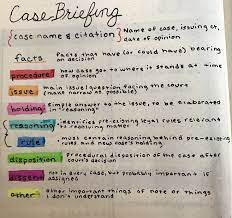 Case Briefing
{case name & citation} Name of case, issuing ct,
date of opinion
facts Facts that have (or could have) bearing
on decision
procedure how case got to where it stands at time
of opinion
issue main issue/question facing the court
(make narrow if possible)
holding simple answer to the issue, to be elaborated
in "reasoning"
reasoning identifies pre-existing legal rules relevant
to resolving matter
rule must contain reasoning behind pre-existing
rules and new case's holding
disposition procedural disposition of the case after
court's decision
dissent not in every case, but probably important if
assigned
other other important things of note or things
I don't understand